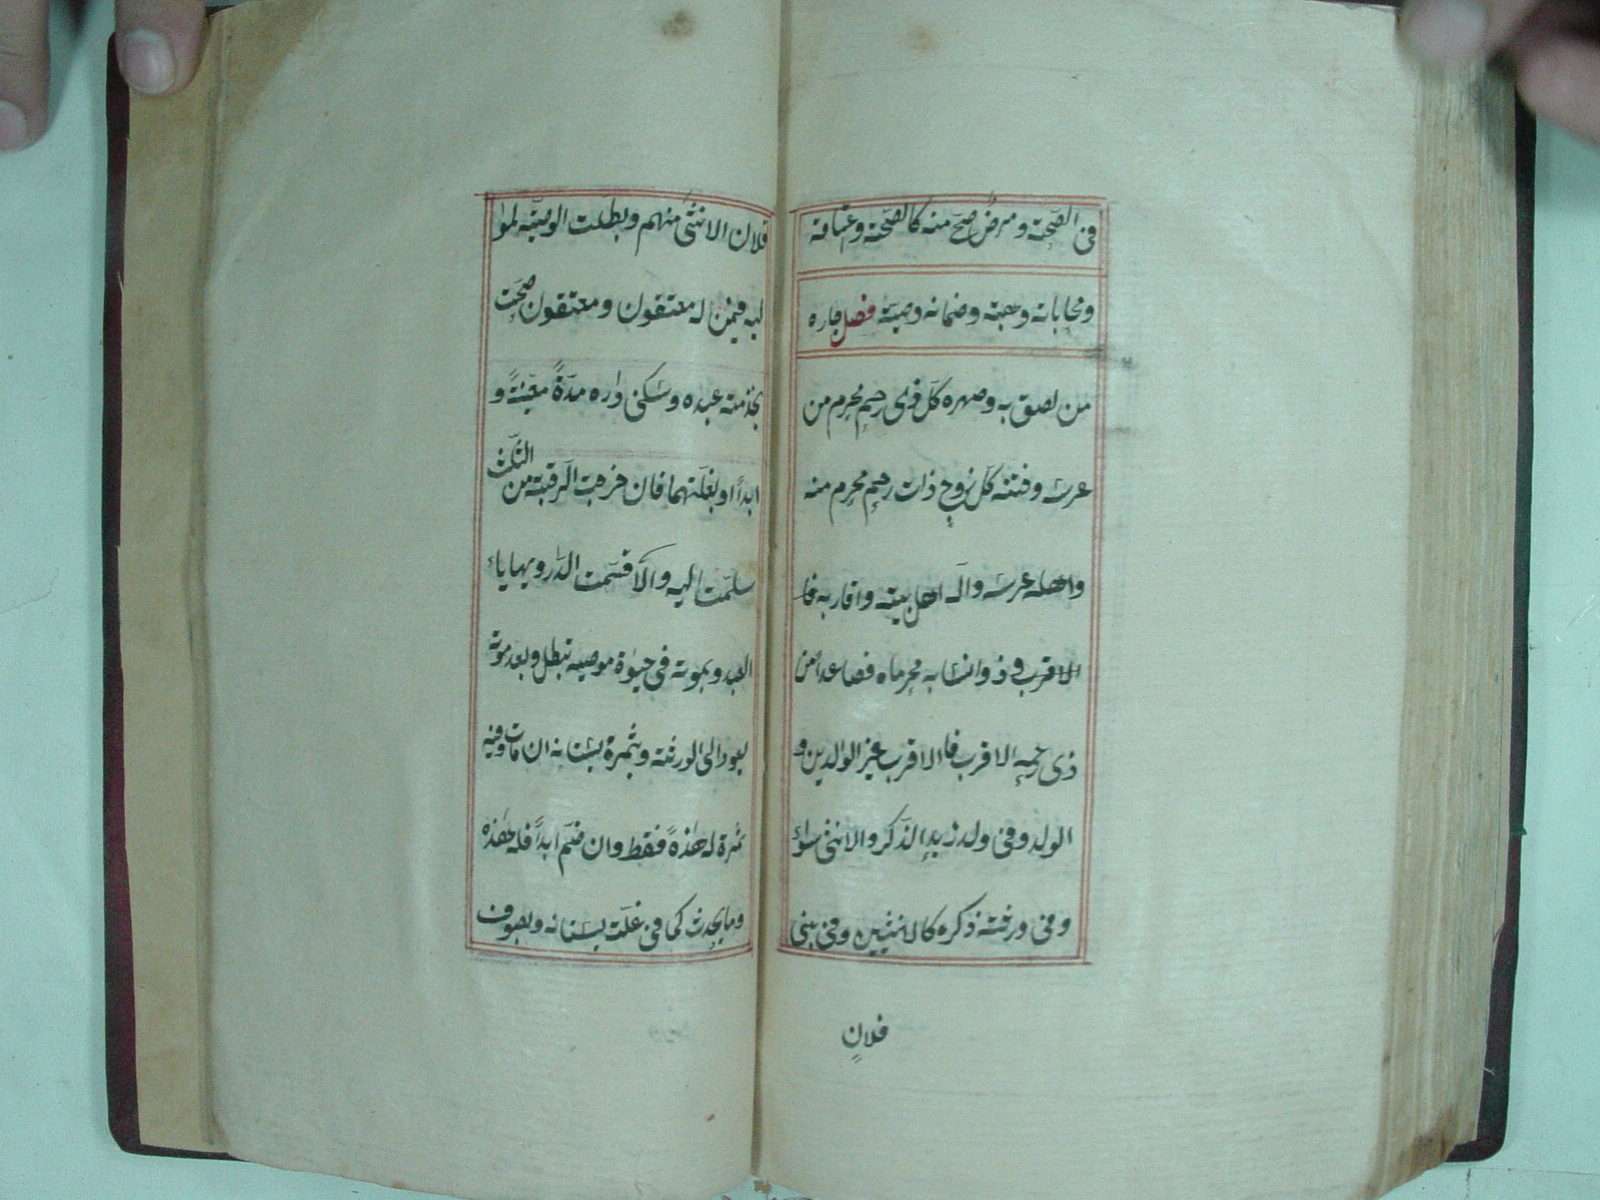 فى الصّحّة ومرضٌ صحّ منه كالصّحّة وعتاقة
ومحاباته وهبته وضمانه وصيّة فصل جاره
من لصق به وصهره كلّ ذى رحمٍ محرم من
عرسه وختنه كلّ زوج ذات رحمٍ محرم منه
واهله عرسه وآله اهل بيته واقاربه فا
الاقرب وذو انسابه محرماه فصاعدا من
ذى رحمه الاقرب فالاقرب غير الوالدين و
الولد وفى ولد زيدٍ الذكر والانثى سواء
وفى ورثته ذكره كالانثيين وفى بنى
فلان
فلان الانثى منهم وبطلت الوصيّة لموا
ليه فيمن له معتقون ومعتقون صحّت
بخدمة عبده وسكنى داره مدّةً معيّنةً و
ابداً وبغلّتهما فان خرجت الرقبة من الثلث
سلّمت اليه والّا قسّمت الدّار ويهاياء
العبد وبموته فى حيوة موصيه تبطل وبعد موته
يعود الى الورثة وبثمرة بستانه ان مات وفيه
ثمرة له هذهً فقط وان ضمّ ابداً فله هذه
وما يحدث كما فى غلّة بستانه وبصوف